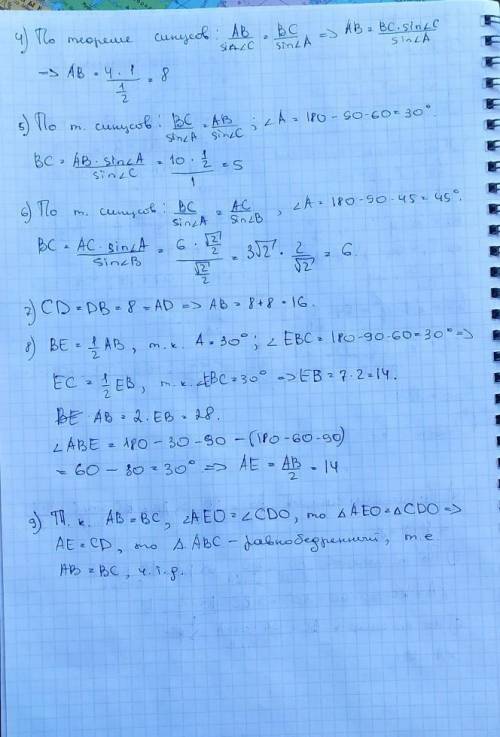 4) По теореме синусов: AB/sin∠C = BC/sin∠A => AB = BC·sin∠C/sin∠A
=> AB = 4·1/(1/2) = 8
5) По т. синусов: BC/sin∠A = AB/sin∠C; ∠A = 180-90-60=30°
BC = AB·sin∠A/sin∠C = 10·1/2/1 = 5
6) По т. синусов: BC/sin∠A = AC/sin∠B, ∠A = 180-90-45=45°.
BC = AC·sin∠A/sin∠B = 6·√2/2/(√2/2) = 3√2·2/√2 = 6.
7) CD = DB = 8 = AD => AB = 8+8 = 16.
8) BE = 1/2 AB, т.к. A = 30°; ∠EBC = 180-90-60=30° =>
EC = 1/2 EB, т.к. ∠EBC = 30° => EB = 7·2 = 14.
AB = 2·EB = 28.
∠ABE = 180-30-90-(180-60-90)
= 60-30 = 30° => AE = AB/2 = 14
9) Т.к. AB = BC, ∠AEO = ∠CDO, то △AEO = △CDO =>
AE = CD, то △ABC - равнобедренный, т.е
AB = BC, ч.т.д.